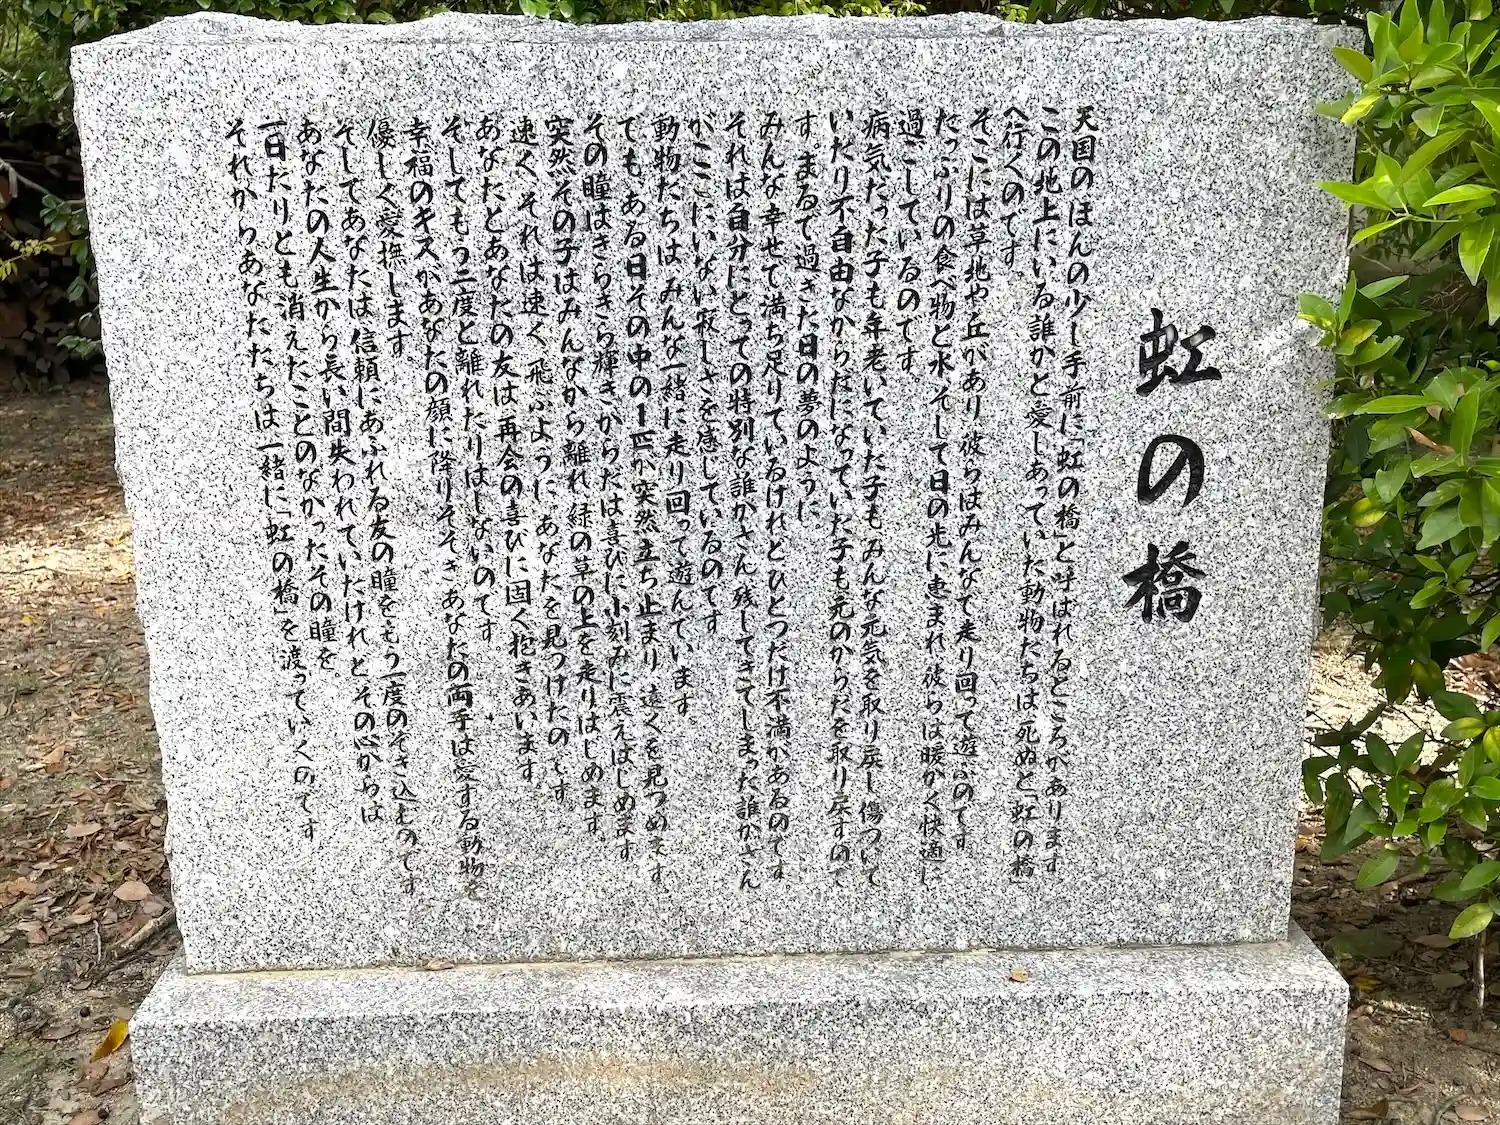 虹の橋
天国のほんの少し手前に「虹の橋」と呼ばれるところがあります。
この地上にいる誰かと愛しあっていた動物たちは死ぬと「虹の橋」
へ行くのです。
そこには草地や丘があり彼らはみんなで走り回って遊ぶのです
たっぷりの食べ物と水そして日の光に恵まれ彼らは暖かく快適に
過ごしているのです。
病気だった子も年老いていた子もみんな元気を取り戻し傷ついて
いたり不自由なからだになっていた子も元のからだを取り戻すので
す。まるで過ぎた日の夢のように
みんな幸せで満ち足りているけれどひとつだけ不満があるのです
それは自分にとっての特別な誰かさん残してきてしまった誰かさん
がここにいない寂しさを感じているのです
動物たちはみんな一緒に走り回って遊んでいます。
でも、ある日その中の1匹が突然立ち止まり遠くを見つめます。
その瞳はきらきら輝きからだは喜びに小刻みに震えはじめます
突然その子はみんなから離れ緑の草の上を走りはじめます。
速くそれは速く飛ぶようにあなたを見つけたのです
あなたとあなたの友は再会の喜びに固く抱きあいます
そしてもう二度と離れたりはしないのです。
幸福のキスがあなたの顔に降りそそぎあなたの両手は愛する動物を
優しく愛撫します。
そしてあなたは信頼にあふれる友の瞳をもう一度のぞき込むのです
あなたの人生から長い間失われていたけれどその心からは
一日たりとも消えたことのなかったその瞳を。
それからあなたたちは一緒に「虹の橋」を渡っていくのです